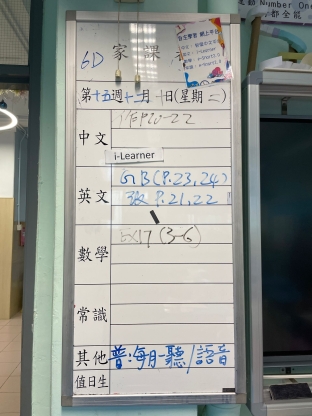 6D 家課
第十五週十二月 日(星期二)
中文 作P20-22
i-Learner
英文 GB(P.23,24)
P.21,22
數學 EX17 (3-6)
常識
其他 普:每月一聽/語音
值日生
Number One
都全能